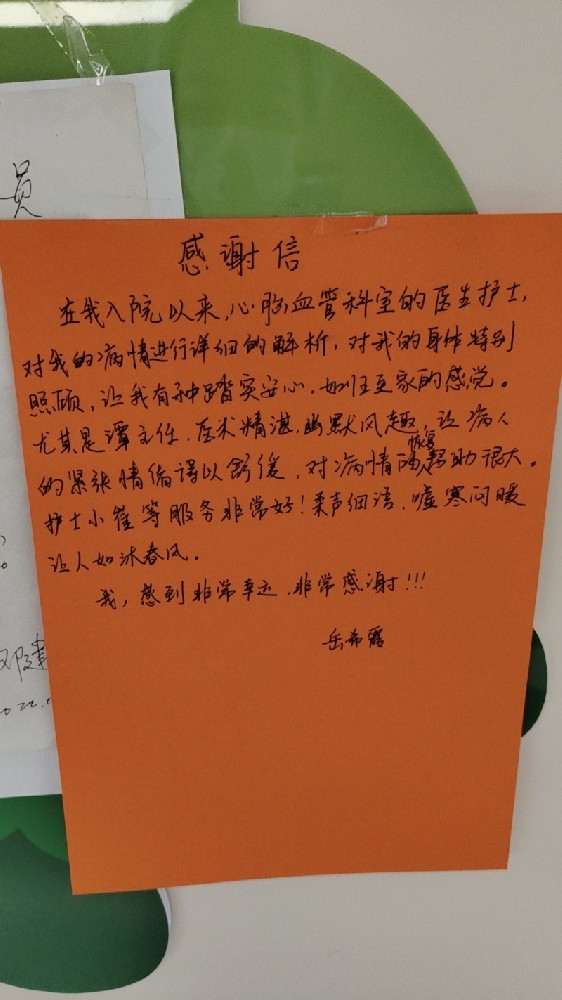 员
感谢信
在我入院以来,心胸血管科室的医生护士,
对我的病情进行详细的解析,对我的身体特别
照顾,让我有种踏实安心,如归至家的感觉。
尤其是谭主任,医术精湛,幽默风趣,让病人
的紧张情绪得以舒缓,对病情的恢复帮助很大。
护士小崔等服务非常好!柔声细语,嘘寒问暖
让人如沐春风。
我,感到非常幸运,非常感谢!!!
岳希露
邓建